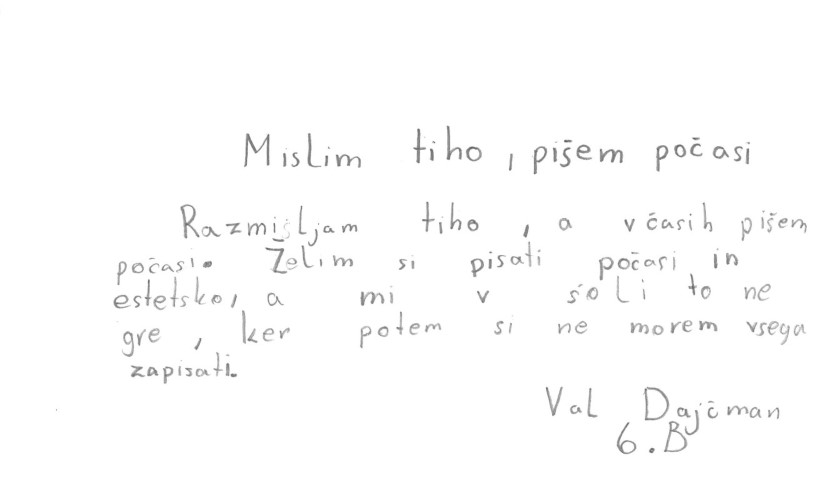 Mislim tiho, pišem počasi
Razmišljam tiho, a včasih pišem
počasi. Želim si pisati počasi in
estetsko, a mi v šoli to ne
gre, ker potem si ne morem vsega
zapisati.
Val Dajčman
6.B